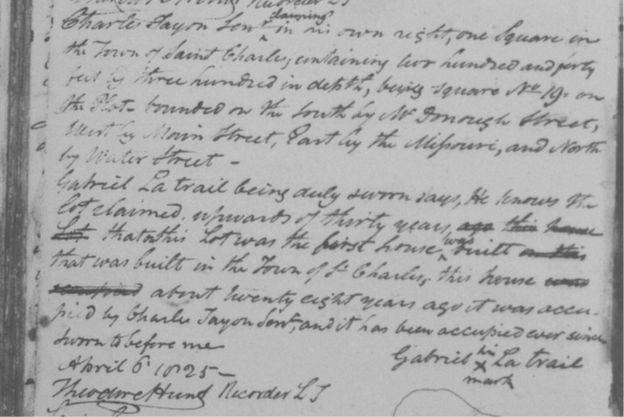 Recorder L T
Charles Tayon Senr claiming in his own right, one Square in
the Town of Saint Charles, containing two hundred and forty
feet by three hundred in depth, being square No 19. on
the Plot bounded on the South by McDonough Street,
West by Main Street, East by the Missouri, and North
by Water Street –
Gabriel La trail being duly sworn says, He knows the
lot claimed, upwards of thirty years, ago this house
Lot that on this Lot was the first house was built on this
that was built in the Town of St Charles, this house was
about twenty eight years ago it was accu-
pied by Charles Tayon Senr, and it has been accupied ever since
Sworn to before me
April 6 1825 –
Gabriel his x mark La trail
Theodore Hunt Recorder L T